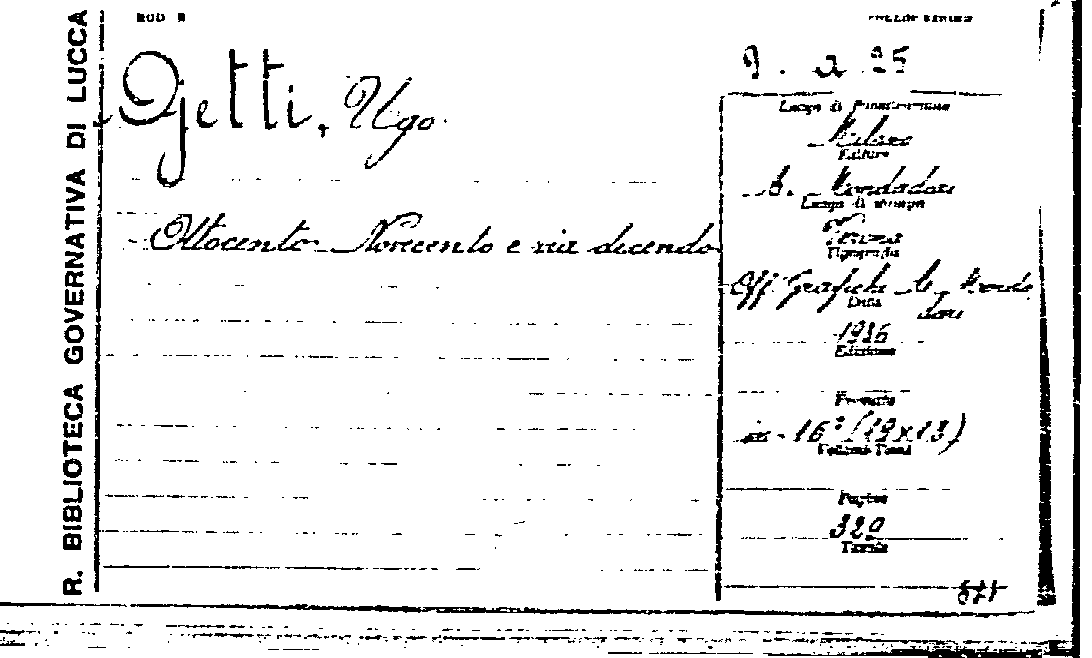 R. BIBLIOTECA GOVERNATIVA DI LUCCA
MOD
Ojetti, Ugo.
Ottocento-Novecento e via dicendo
9. a 25
Luogo di
Milano
Editore
A. Mondadori
Luogo di stampa
Verona
Tipografia
Off. Grafiche A. Monda
dori
Data
1936
Edizione
Formato
in-16° (19x13)
Volumi-Tomi
Pagine
320
Tavole